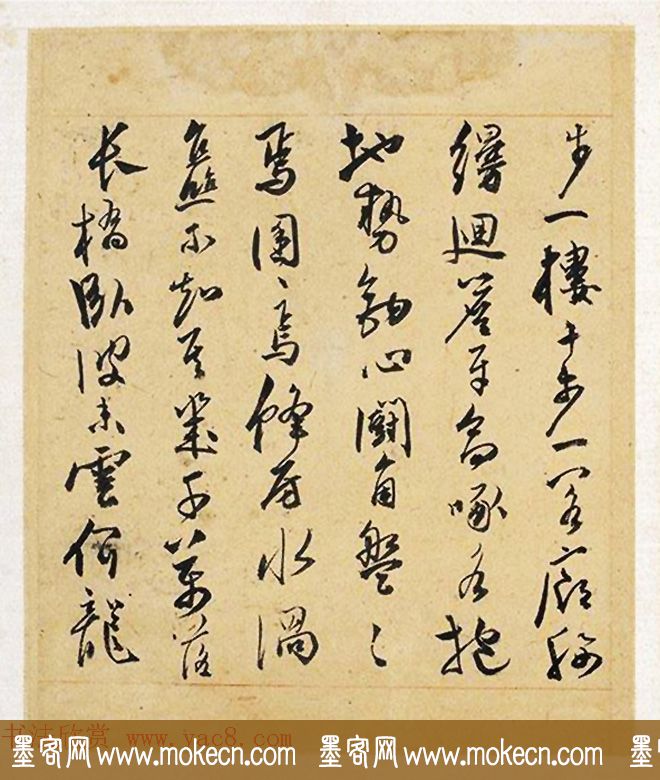 步一樓十步一閣廊腰
縵迴簷牙高啄各抱
地勢鉤心鬭角盤〻
焉囷〻焉蜂房水渦
矗不知其幾千萬落
長橋臥波未雲何龍
书法欣赏 www.yac8.com
墨客网 www.mokecn.com 墨客网 www.mokecn.com